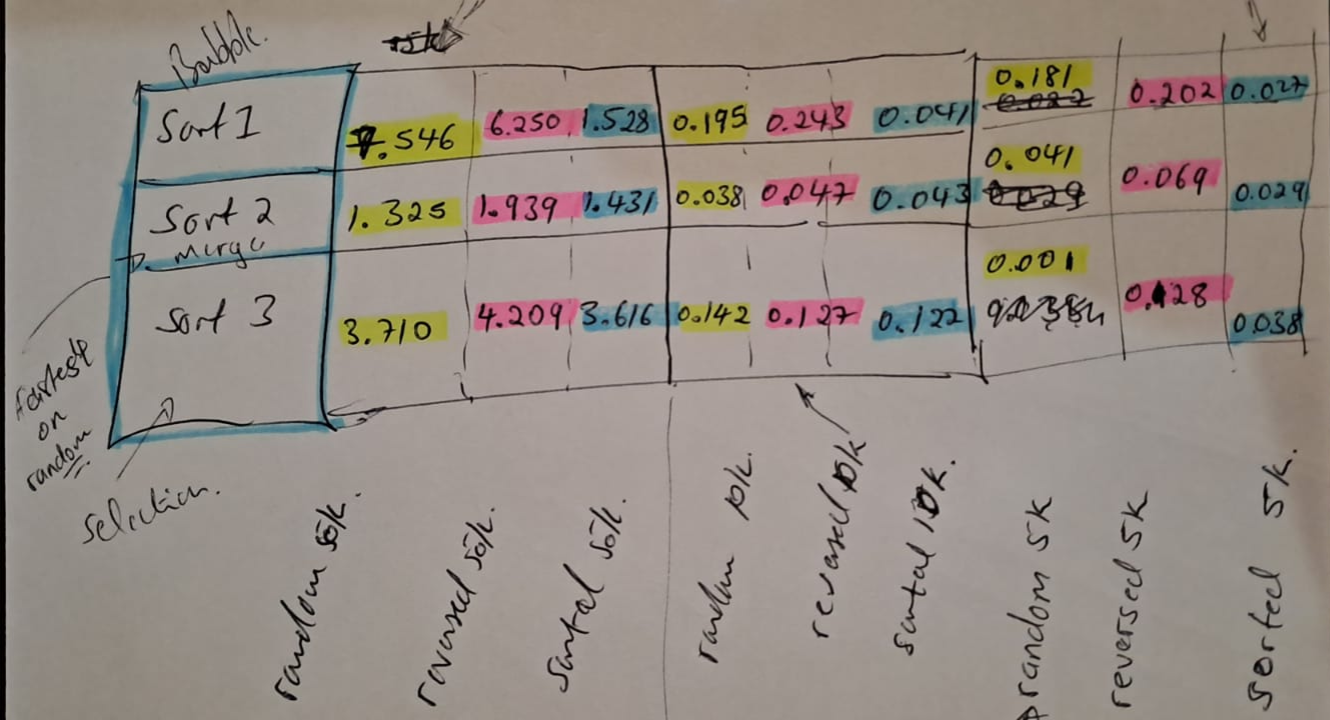 Bubble.
Sort 1 7.546 6.250 1.528 0.195 0.243 0.041 0.181 0.202 0.027
Sort 2 1.325 1.939 1.431 0.038 0.047 0.043 0.041 0.069 0.029
merge
Sort 3 3.710 4.209 3.616 0.142 0.127 0.122 0.001 0.128 0.038
Fastest
on
random
selection.
random 50k.
reversed 50k.
sorted 50k.
random 10k.
reversed 10k
sorted 10k.
random 5k
reversed 5k
sorted 5k.